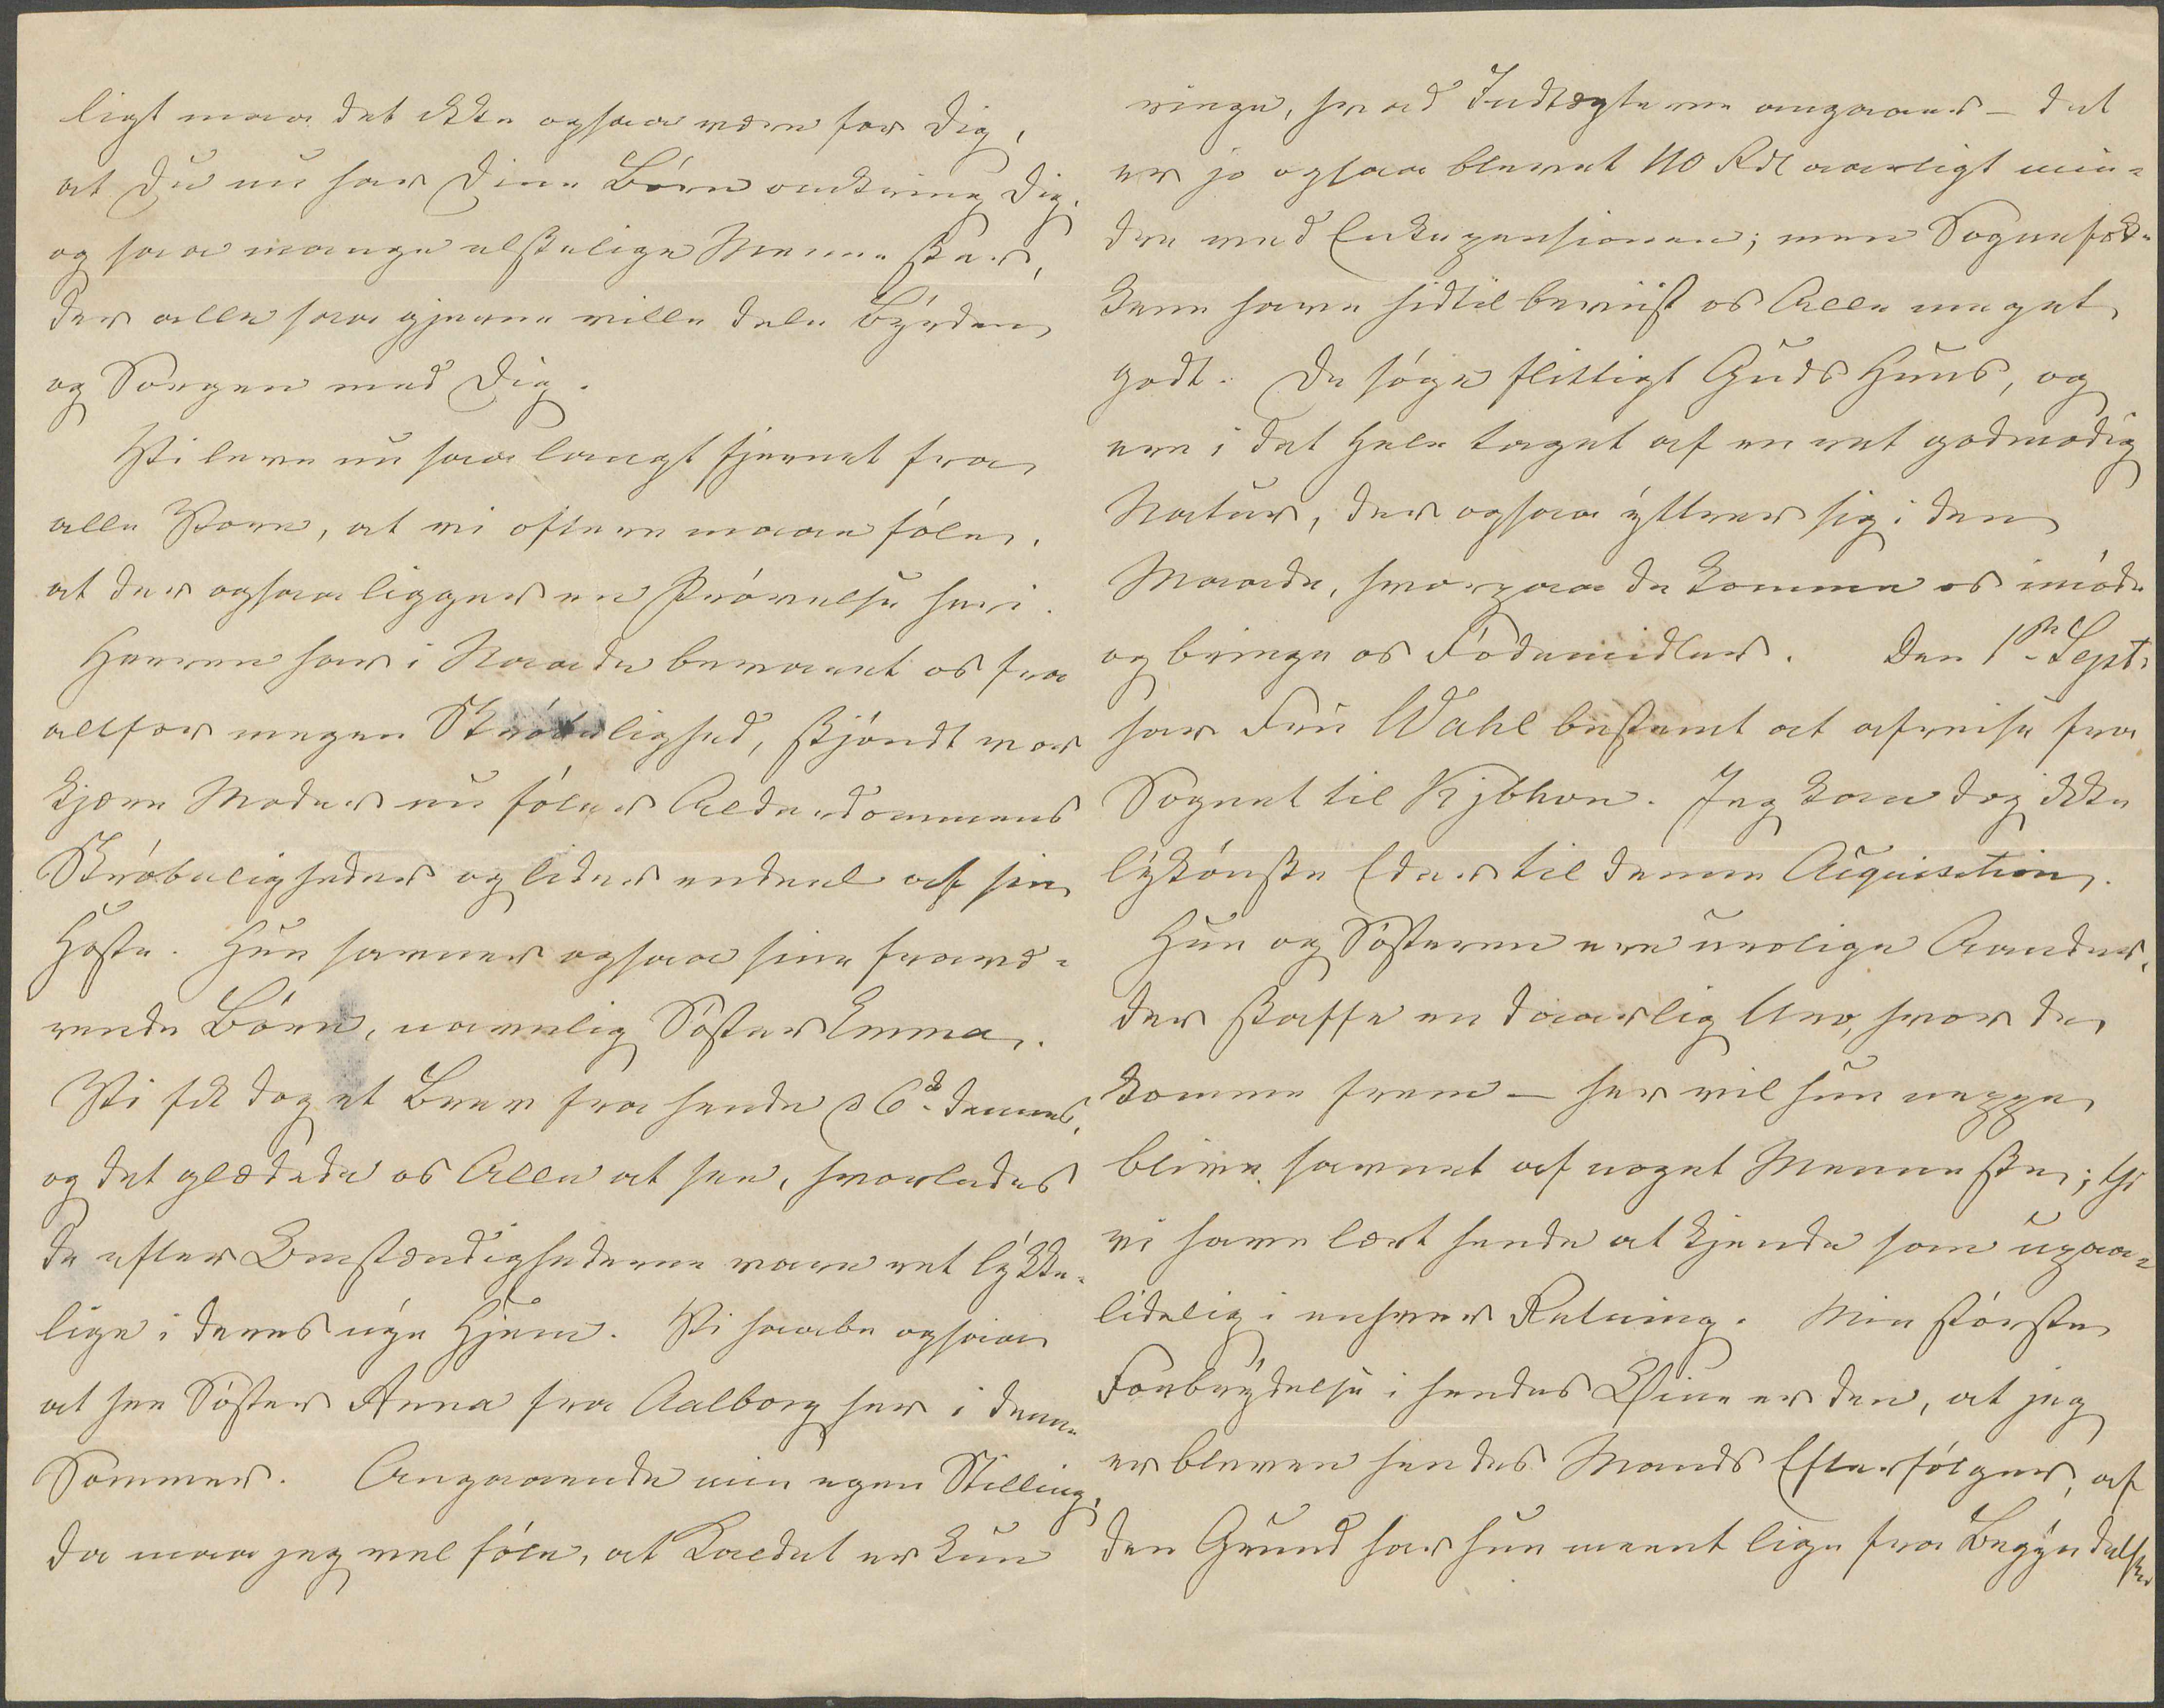 ligt maa det ikke ogsaa være for Dig,
at Du nu har Dine Börn omkring Dig,
og saa mange elskelige Mennesker,
der alle saa gjerne ville dele Byrden
og Sorgen med Dig.
Vi leve nu saa langt fjernet fra
alle Vore, at vi oftere maae föle,
at der ogsaa ligger en Prövelse heri.
Herren har i Naade bevaret os fra
altfor megen Skröbelighed, skjöndt vor
kjære Moder nu föler Alderdommens
Skröbeligheder og lider endeel af sin
Hoste. Hun savner ogsaa sine fravæ-
rende Börn, navnlig Söster Emma.
Vi fik dog et Brev fra hende d 6d dennes,
og det glædede os Alle at see, hvorledes
de efter Omstændighederne vare ret lykke-
lige i deres nye Hjem. Vi haabe ogsaa
at see Söster Anna fra Aalborg her i denne
Sommer. Angaaende min egen Stilling,
da maa jeg vel föle, at Kaldet er kun
ringe, hvad Indtægterne angaaer - det
er jo ogsaa blevet 110 Rdl aarligt min-
dre med Enkepensionen; men Sognefol-
kene have hidtil beviist os Alle meget
godt. De söge flittigt Guds Huus, og
ere i det Hele taget af en ret godmodig
Natur, der ogsaa yttrer sig i den
Maade, hvorpaa de komme os imöde
og bringe os Födemidler. Den 1ste Sept.
har Fru Wahl bestemt at afreise fra
Sognet til Kjbhvn. Jeg kan dog ikke
lykönske Eder til denne Acquisition.
Hun og Sösteren ere urolige Aander,
der skaffe en daarlig Uro, hvor de
komme frem - her vil hun neppe
blive savnet af noget Menneske; thi
vi have lært hende at kjende som upaa-
lidelig i enhver Retning. Min störste
Forbrydelse i hendes Öine er den, at jeg
er bleven hendes Mands Efterfölger, af
den Grund har hun meent lige fra Begyndelsen